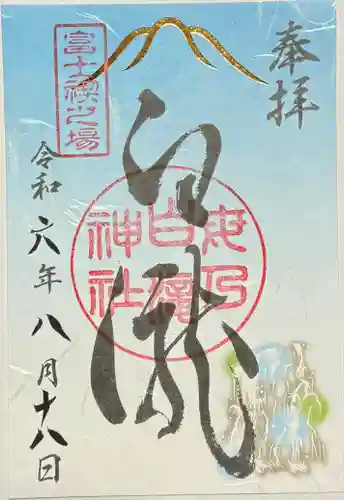 奉拝
白瀧
富士禊之場
母乃白滝神社
令和六年八月十八日